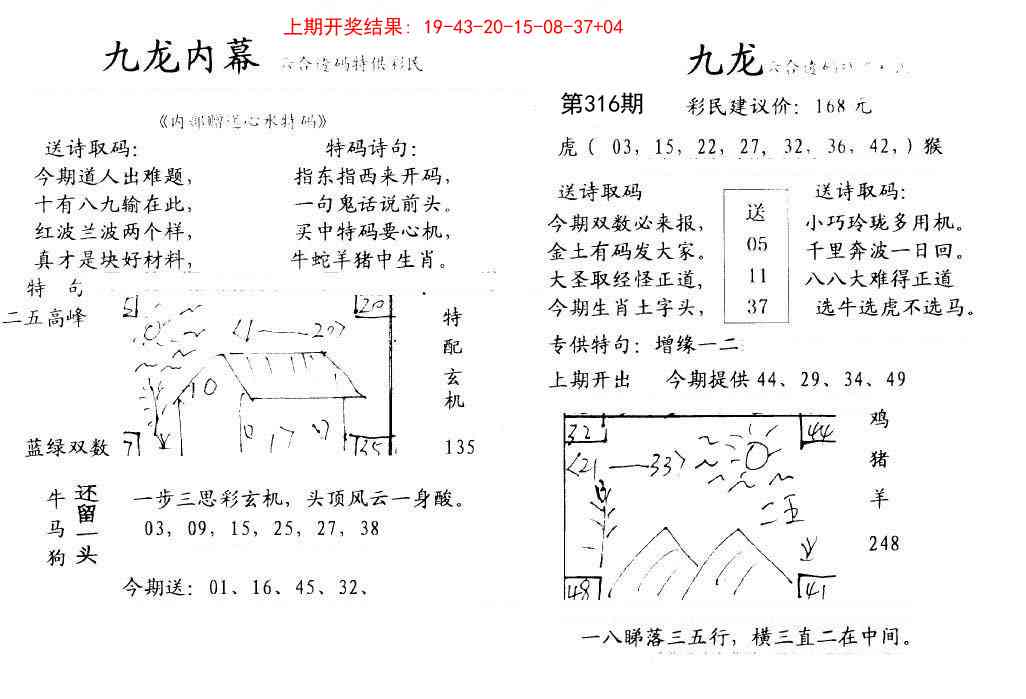 上期开奖结果: 19-43-20-15-08-37+04
九龙内幕 六合透码特供彩民
《内部赠送心水特码》
送诗取码:
今期道人出难题,
十有八九输在此,
红波兰波两个样,
真才是块好材料,
特码诗句:
指东指西来开码,
一句鬼话说前头。
买中特码要心机,
牛蛇羊猪中生肖。
特 句
二五高峰
蓝绿双数
5
20
《1——20》
10
0 17
7
35
特
配
玄
机
135
牛
马
狗
还
留
一
头
一步三思彩玄机, 头顶风云一身酸。
03, 09, 15, 25, 27, 38
今期送: 01、16、45、32、
九龙 六合透码
第316期 彩民建议价: 168 元
虎 ( 03, 15, 22, 27, 32, 36, 42, ) 猴
送诗取码
今期双数必来报,
金土有码发大家。
大圣取经怪正道,
今期生肖土字头,
送
05
11
37
送诗取码:
小巧玲珑多用机。
千里奔波一日回。
八八大难得正道
选牛选虎不选马。
专供特句: 增缘一二
上期开出 今期提供 44、29、34、49
32
44
《21——33》
二五
48
41
鸡
猪
羊
248
一八睇落三五行, 横三直二在中间。